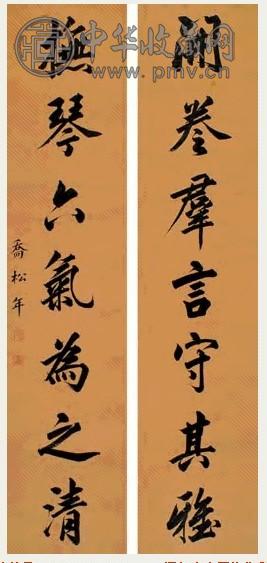 開卷群言守其雅
撫琴六氣為之清
喬松年
中华收藏网
www.pmv.cn